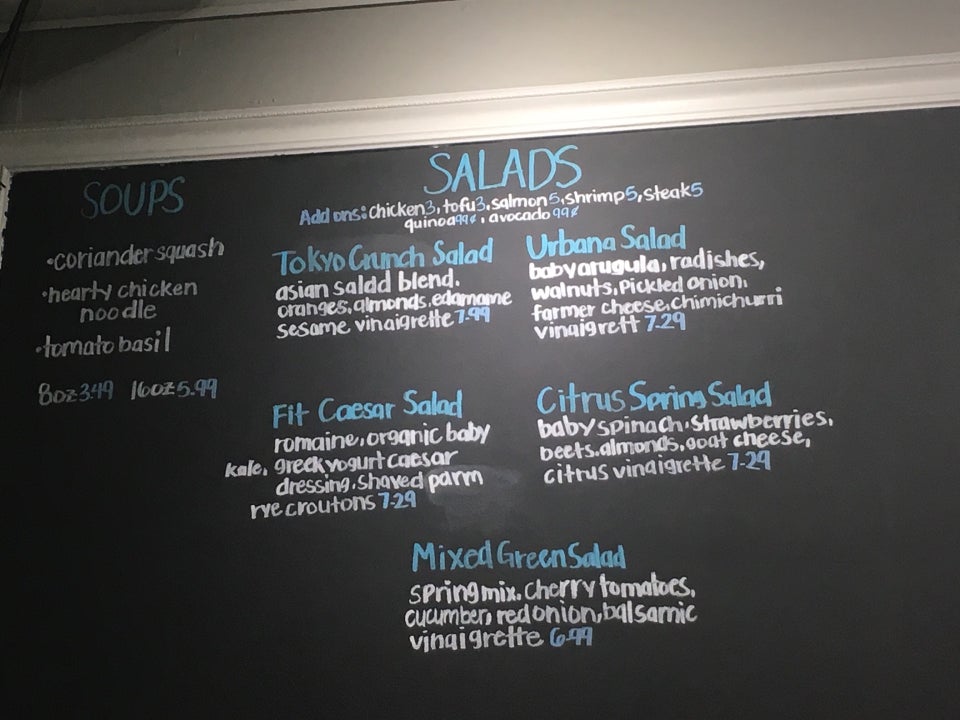 SOUPS
•coriander squash
•hearty chicken
noodle
•tomato basil
8oz 3.49 16oz 5.99
SALADS
Add ons: chicken 3, tofu 3, salmon 5, shrimp 5, steak 5
quinoa 99¢, avocado 99¢
Tokyo Crunch Salad
asian salad blend,
oranges, almonds, edamame
sesame vinaigrette 7.99
Urbana Salad
baby arugula, radishes,
walnuts, pickled onion,
farmer cheese, chimichurri
vinaigrett 7.29
Fit Caesar Salad
romaine, organic baby
kale, greek yogurt caesar
dressing, shaved parm
rye croutons 7.29
Citrus Spring Salad
baby spinach, strawberries,
beets, almonds, goat cheese,
citrus vinaigrette 7.29
Mixed Green Salad
spring mix, cherry tomatoes,
cucumber, red onion, balsamic
vinaigrette 6.99